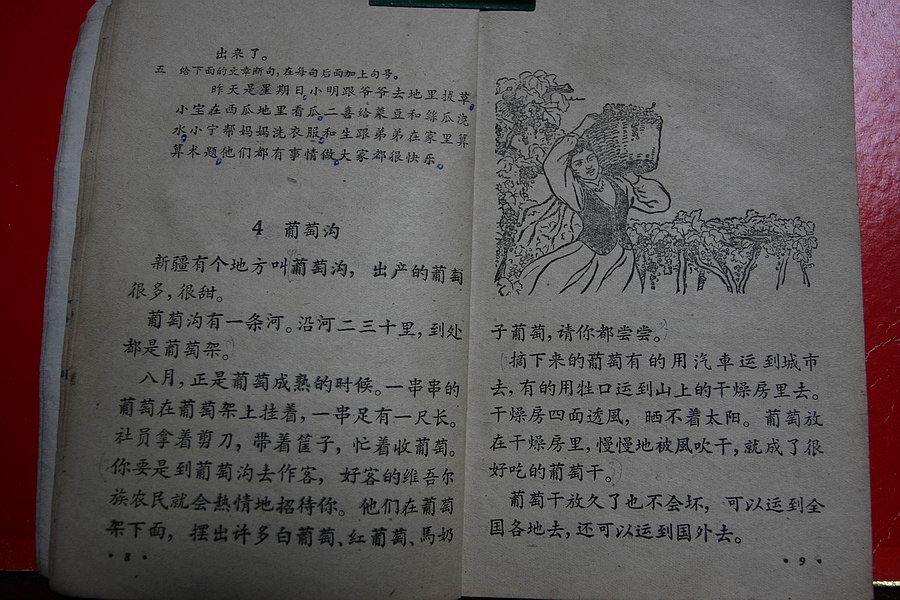 出来了。
五 给下面的文章断句,在每句后面加上句号。
昨天是星期日小明跟爷爷去地里拔草
小宝在西瓜地里看瓜二喜给菜豆和丝瓜浇
水小宁帮妈妈洗衣服和生跟弟弟在家里算
算术题他们都有事情做大家都很快乐
4 葡萄沟
新疆有个地方叫葡萄沟,出产的葡萄
很多,很甜。
葡萄沟有一条河。沿河二三十里,到处
都是葡萄架。
八月,正是葡萄成熟的时候。一串串的
葡萄在葡萄架上挂着,一串足有一尺长。
社员拿着剪刀,带着筐子,忙着收葡萄。
你要是到葡萄沟去作客,好客的维吾尔
族农民就会热情地招待你。他们在葡萄
架下面,摆出许多白葡萄、红葡萄、馬奶
• 8 •
子葡萄,请你都尝尝。
摘下来的葡萄有的用汽車运到城市
去,有的用牲口运到山上的干燥房里去。
干燥房四面透風,晒不着太阳。葡萄放
在干燥房里,慢慢地被風吹干,就成了很
好吃的葡萄干。
葡萄干放久了也不会坏,可以运到全
国各地去,还可以运到国外去。
• 9 •